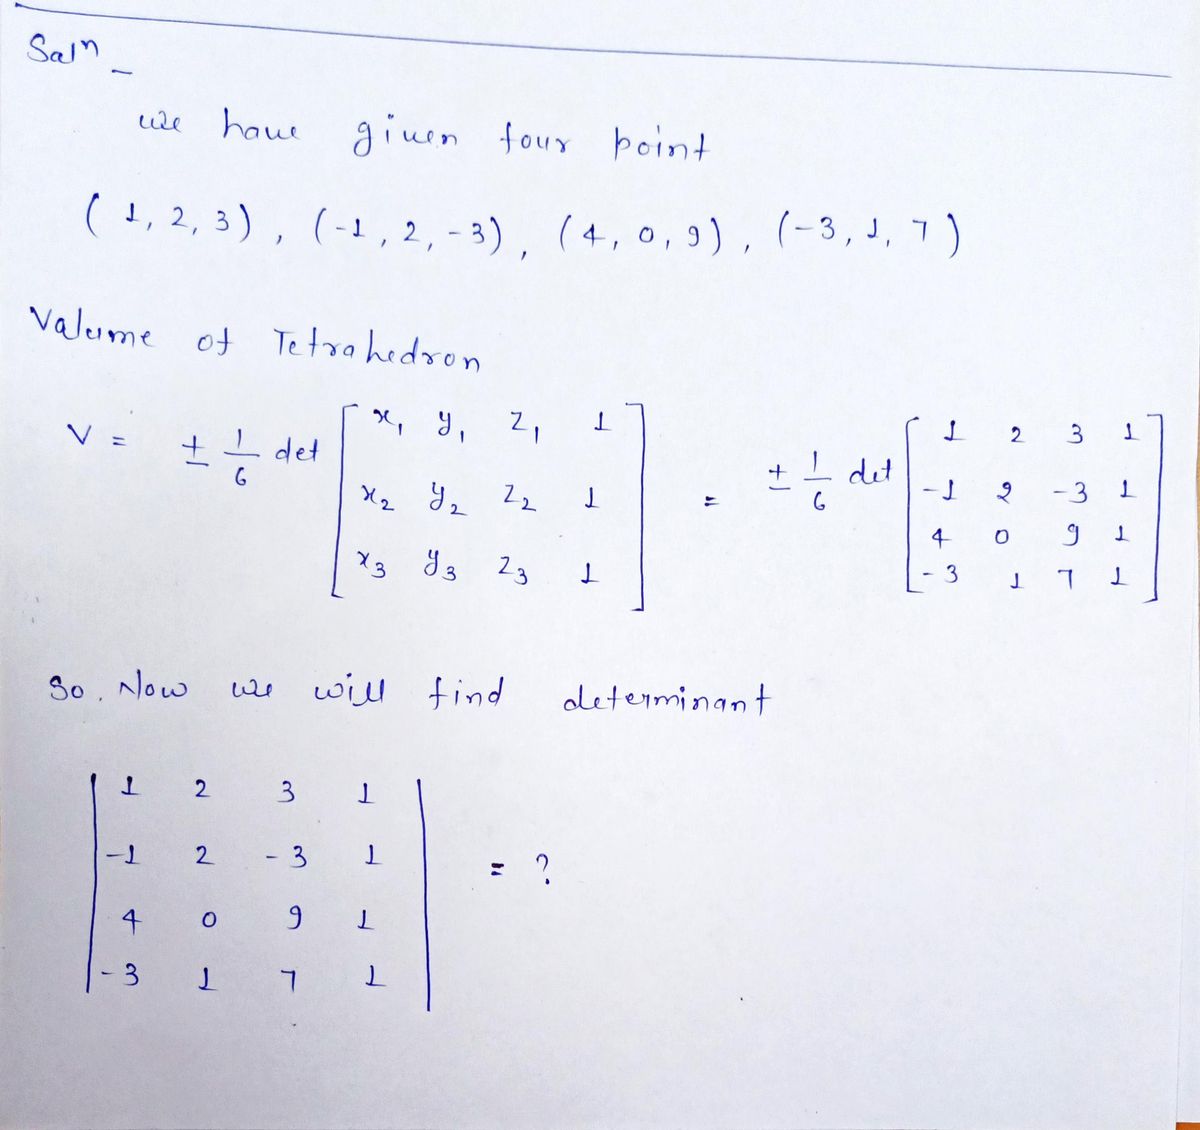 Salⁿ -
we have given four point
( 1, 2, 3) , (-1, 2, -3), (4, 0, 9), (-3, 1, 7)
Valume of Tetrahedron
V = ± 1/6 det [ x₁ y₁ z₁ 1 = ± 1/6 det [ 1 2 3 1
x₂ y₂ z₂ 1 -1 2 -3 1
x₃ y₃ z₃ 1 ] 4 0 9 1
-3 1 7 1 ]
So. Now we will find determinant
| 1 2 3 1 |
| -1 2 -3 1 | = ?
| 4 0 9 1 |
| -3 1 7 1 |